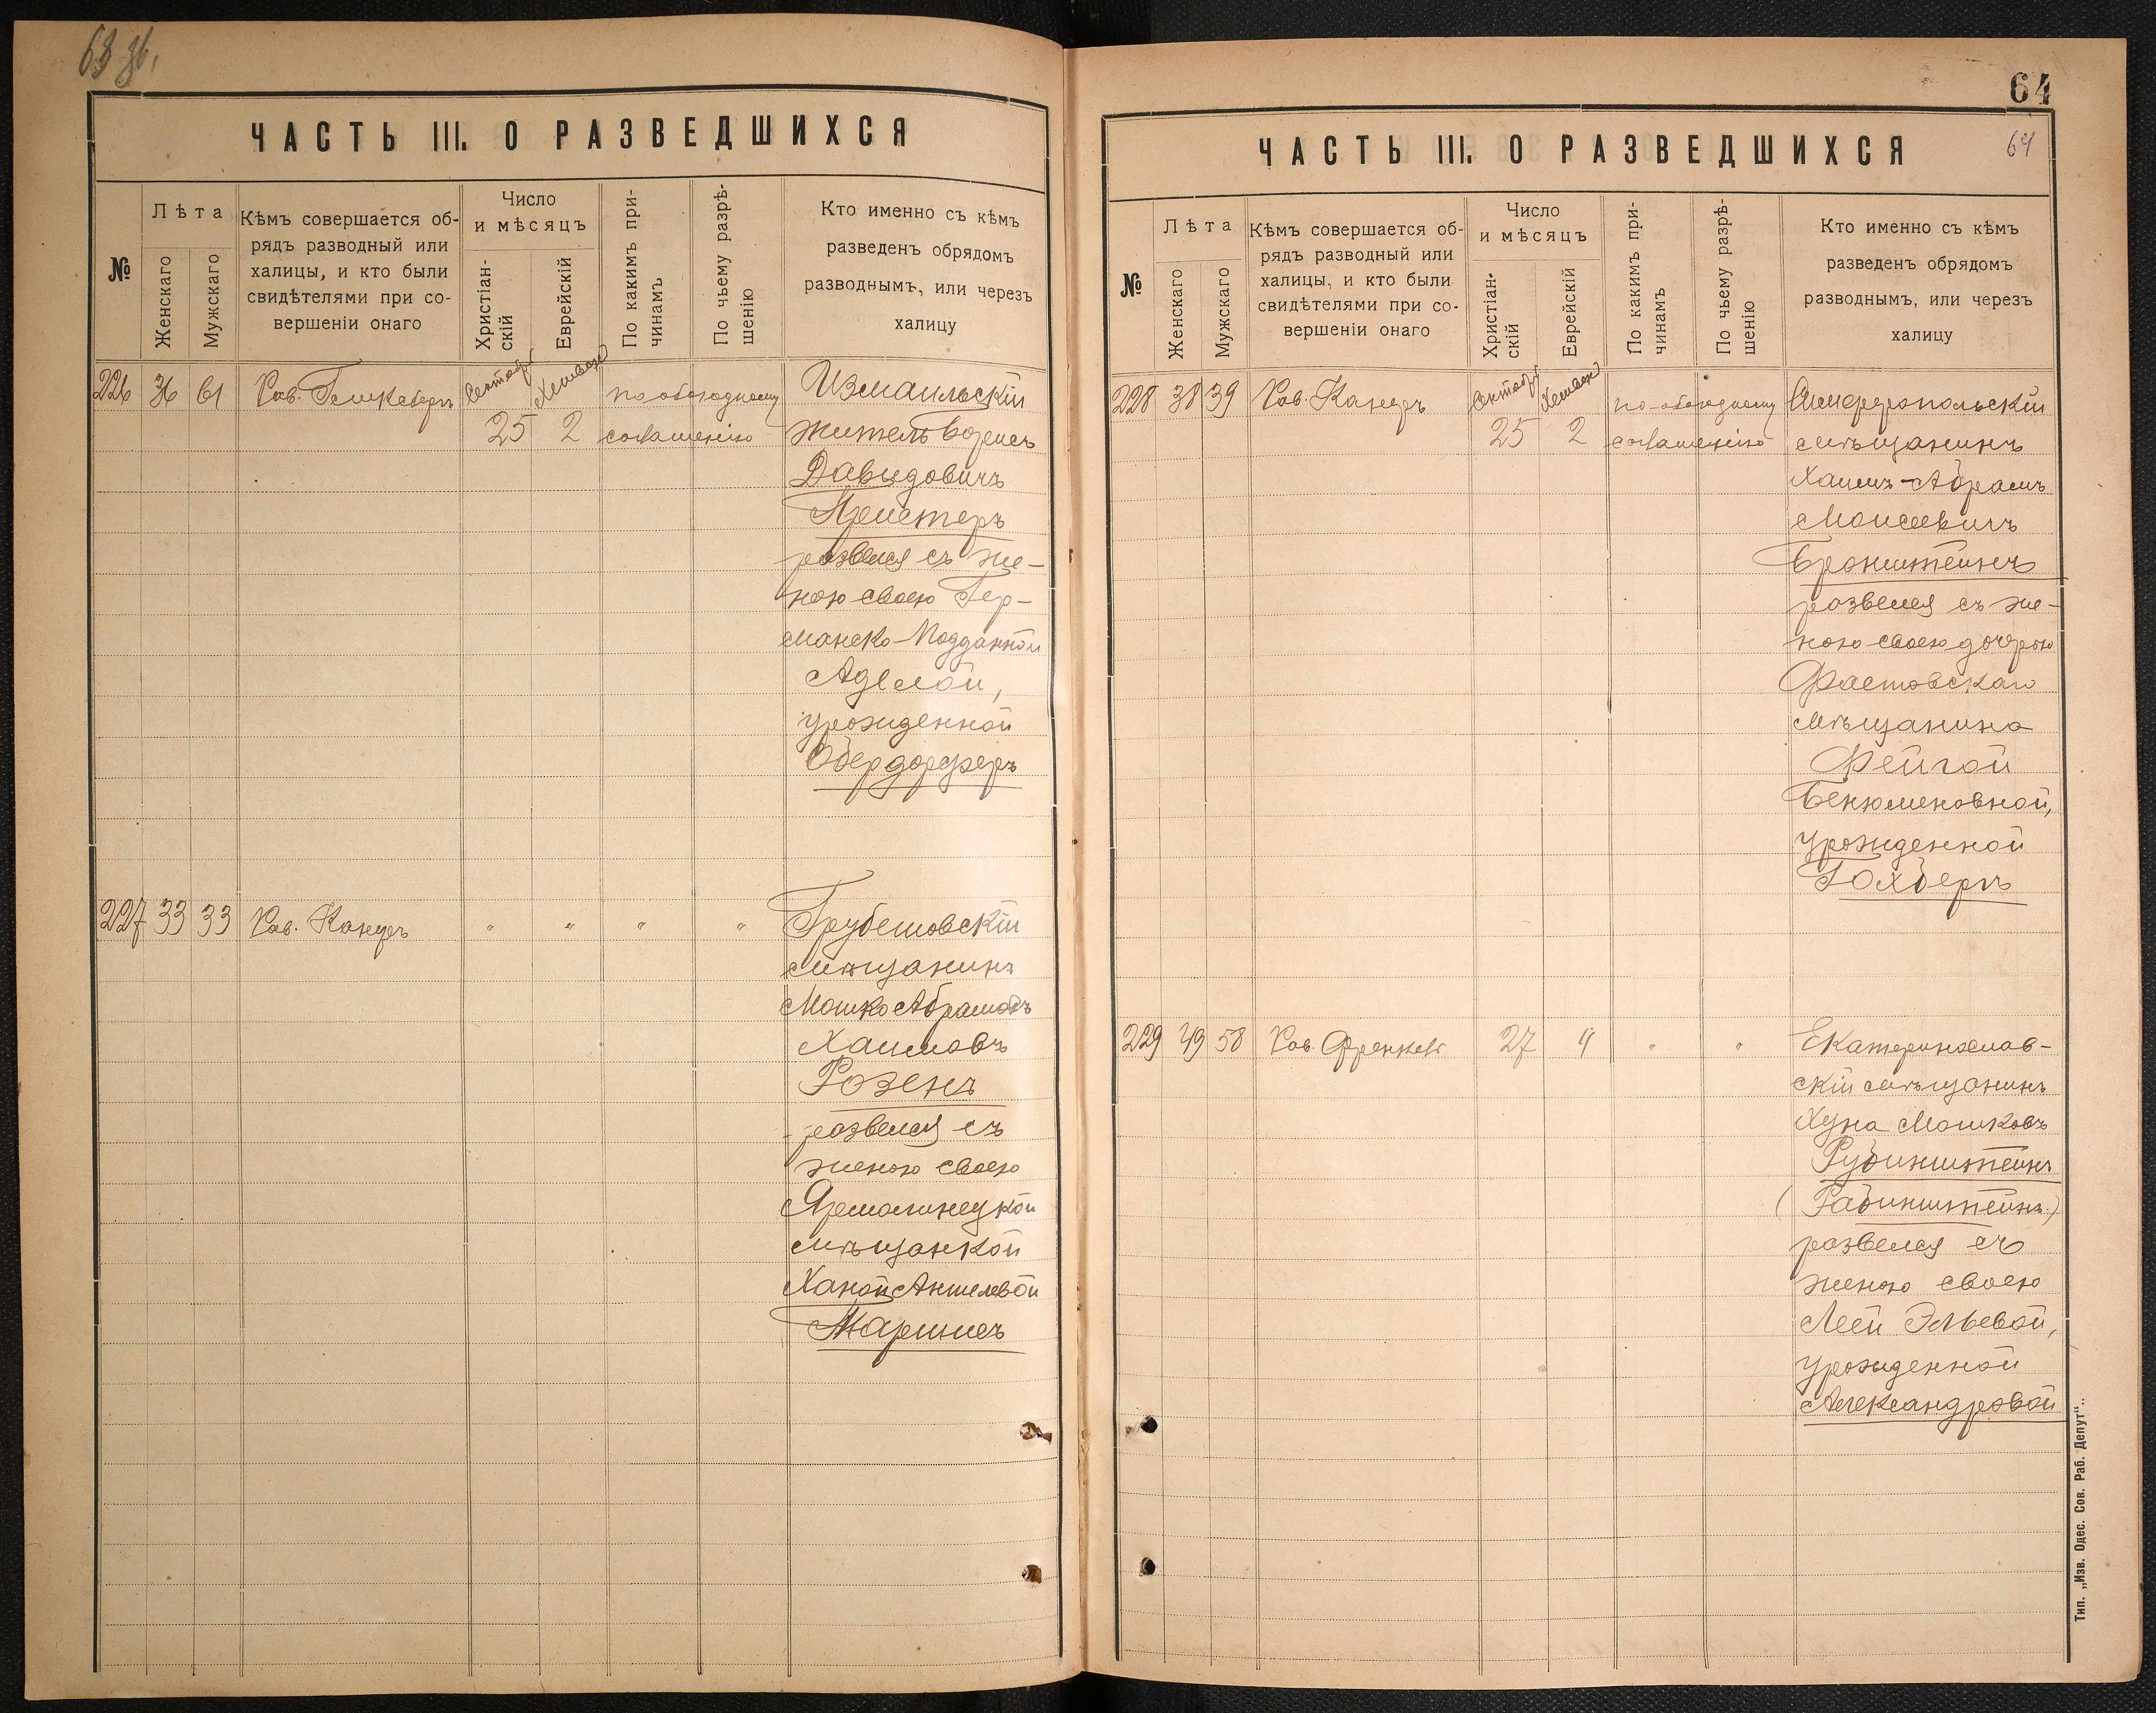 63 зв.
ЧАСТЬ III. О РАЗВЕДШИХСЯ
№
Лѣта
Женскаго
Мужскаго
Кѣмъ совершается об-
рядъ разводный или
халицы, и кто были
свидѣтелями при со-
вершеніи онаго
Число
и мѣсяцъ
Христіан-
скій
Еврейскій
По какимъ при-
чинамъ
По чьему разрѣ-
шенію
Кто именно съ кѣмъ
разведенъ обрядомъ
разводнымъ, или черезъ
халицу
226 36 61 Рав. Сентябр Хешван по обоюдному Измаильскій
25 2 соглашенію житель
Давыдовичъ
развелся съ же-
ною своею Гер-
манско-Подданной
Аделой,
урожденной
Обердорферъ
227 33 33 Рав. Канцеръ " " " " Грубешовскій
мѣщанинъ
Мошко Абрамовъ
Хаимовъ
Розенъ
развелся съ
женою своею
Ярмолинецкой
мѣщанкой
Ханой Аншелевой
64
ЧАСТЬ III. О РАЗВЕДШИХСЯ
64
№
Лѣта
Женскаго
Мужскаго
Кѣмъ совершается об-
рядъ разводный или
халицы, и кто были
свидѣтелями при со-
вершеніи онаго
Число
и мѣсяцъ
Христіан-
скій
Еврейскій
По какимъ при-
чинамъ
По чьему разрѣ-
шенію
Кто именно съ кѣмъ
разведенъ обрядомъ
разводнымъ, или черезъ
халицу
228 38 39 Рав. Канцеръ Сентябр Хешван по обоюдному Симферопольскій
25 2 соглашенію мѣщанинъ
Хаимъ-Абрамъ
Моисеевичъ
Бронштейнъ
развелся съ же-
ною своею дочерью
Фастовскаго
мѣщанина
Фейгой
Бенюменовной,
урожденной
Гохбергъ
229 49 58 Рав. Френкель 27 4 " " Екатеринослав-
скій мѣщанинъ
Хуна Мошковъ
Рубинштейнъ
(Рабинштейнъ)
развелся съ
женою своею
Леей Эльевой,
урожденной
Александровой
Тип. „Изв. Одес. Сов. Раб. Депут“.